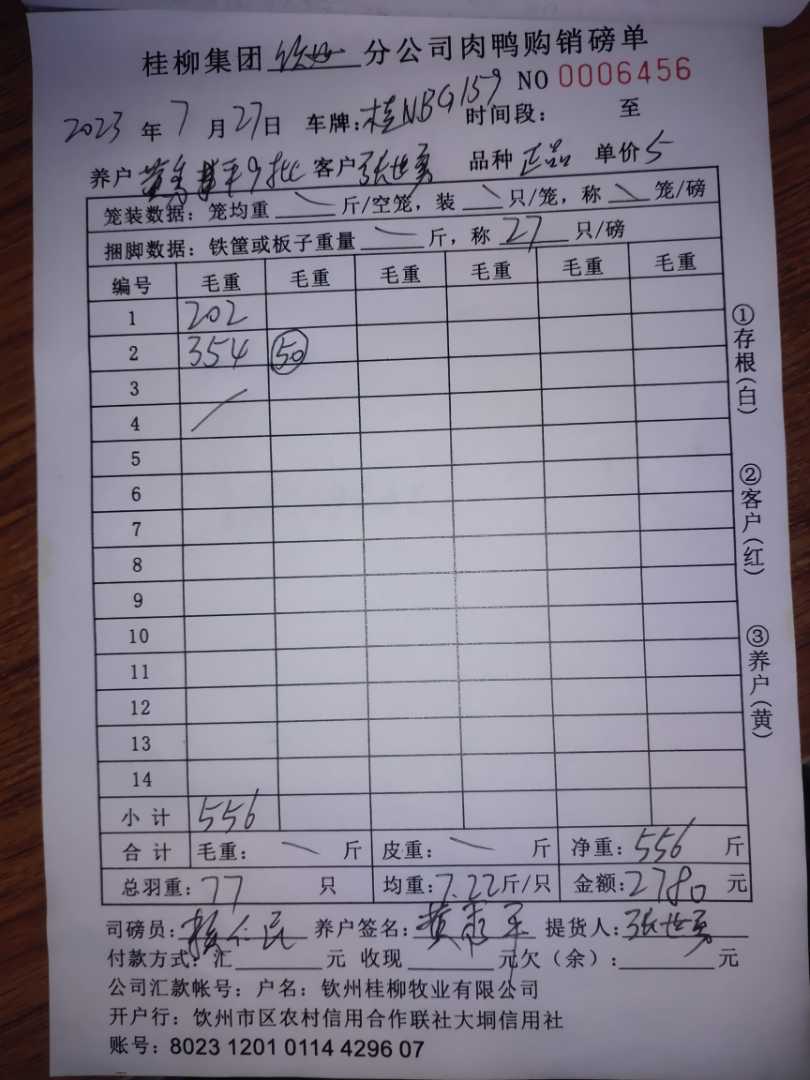 桂柳集团 钦州 分公司肉鸭购销磅单
NO 0006456
2023 年 7 月 27 日 车牌: 桂NBG159 时间段: 至
养户 9批 客户 张世勇 品种 正品 单价 5
笼装数据: 笼均重 斤/空笼, 装 只/笼, 称 笼/磅
捆脚数据: 铁筐或板子重量 斤, 称 27 只/磅
编号 毛重 毛重 毛重 毛重 毛重 毛重
1 202
2 354 50
3
4
5
6
7
8
9
10
11
12
13
14
小 计 556
合 计 毛重: 斤 皮重: 斤 净重: 556 斤
总羽重: 77 只 均重: 7.22 斤/只 金额: 2780 元
司磅员: 养户签名: 提货人: 张世勇
付款方式: 汇 元 收现 元欠(余): 元
公司汇款帐号: 户名: 钦州桂柳牧业有限公司
开户行: 饮州市区农村信用合作联社大垌信用社
账号: 8023 1201 0114 4296 07
①存根(白)
②客户(红)
③养户(黄)